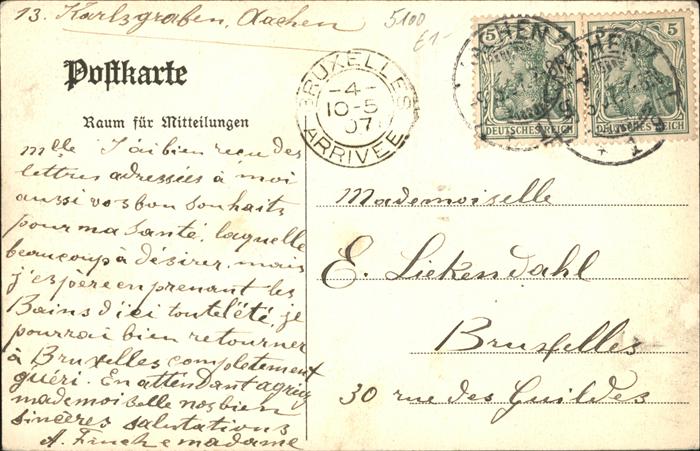 13. Karlsgraben, Aachen
5100
£1-
Postkarte
Raum für Mitteilungen
BRUXELLES
-4-
10-5
07
ARRIVÉE
AACHEN
AACHEN
1
5
5
DEUTSCHES REICH
DEUTSCHES REICH
Mlle J'ai bien reçu des
lettres adressées à moi
aussi vos bon souhaits
pour ma santé, laquelle
beaucoup à désirer, mais
j'espère en prenant les
Bains d'ici tout l'été, je
pourrai bien retourner
à Bruxelles completement
guéri. En attendant agréez
mademoiselle nos bien
sincères salutations
A. Finck e madame
Mademoiselle
E. Liekendahl
Bruxelles
30 rue des Guildes